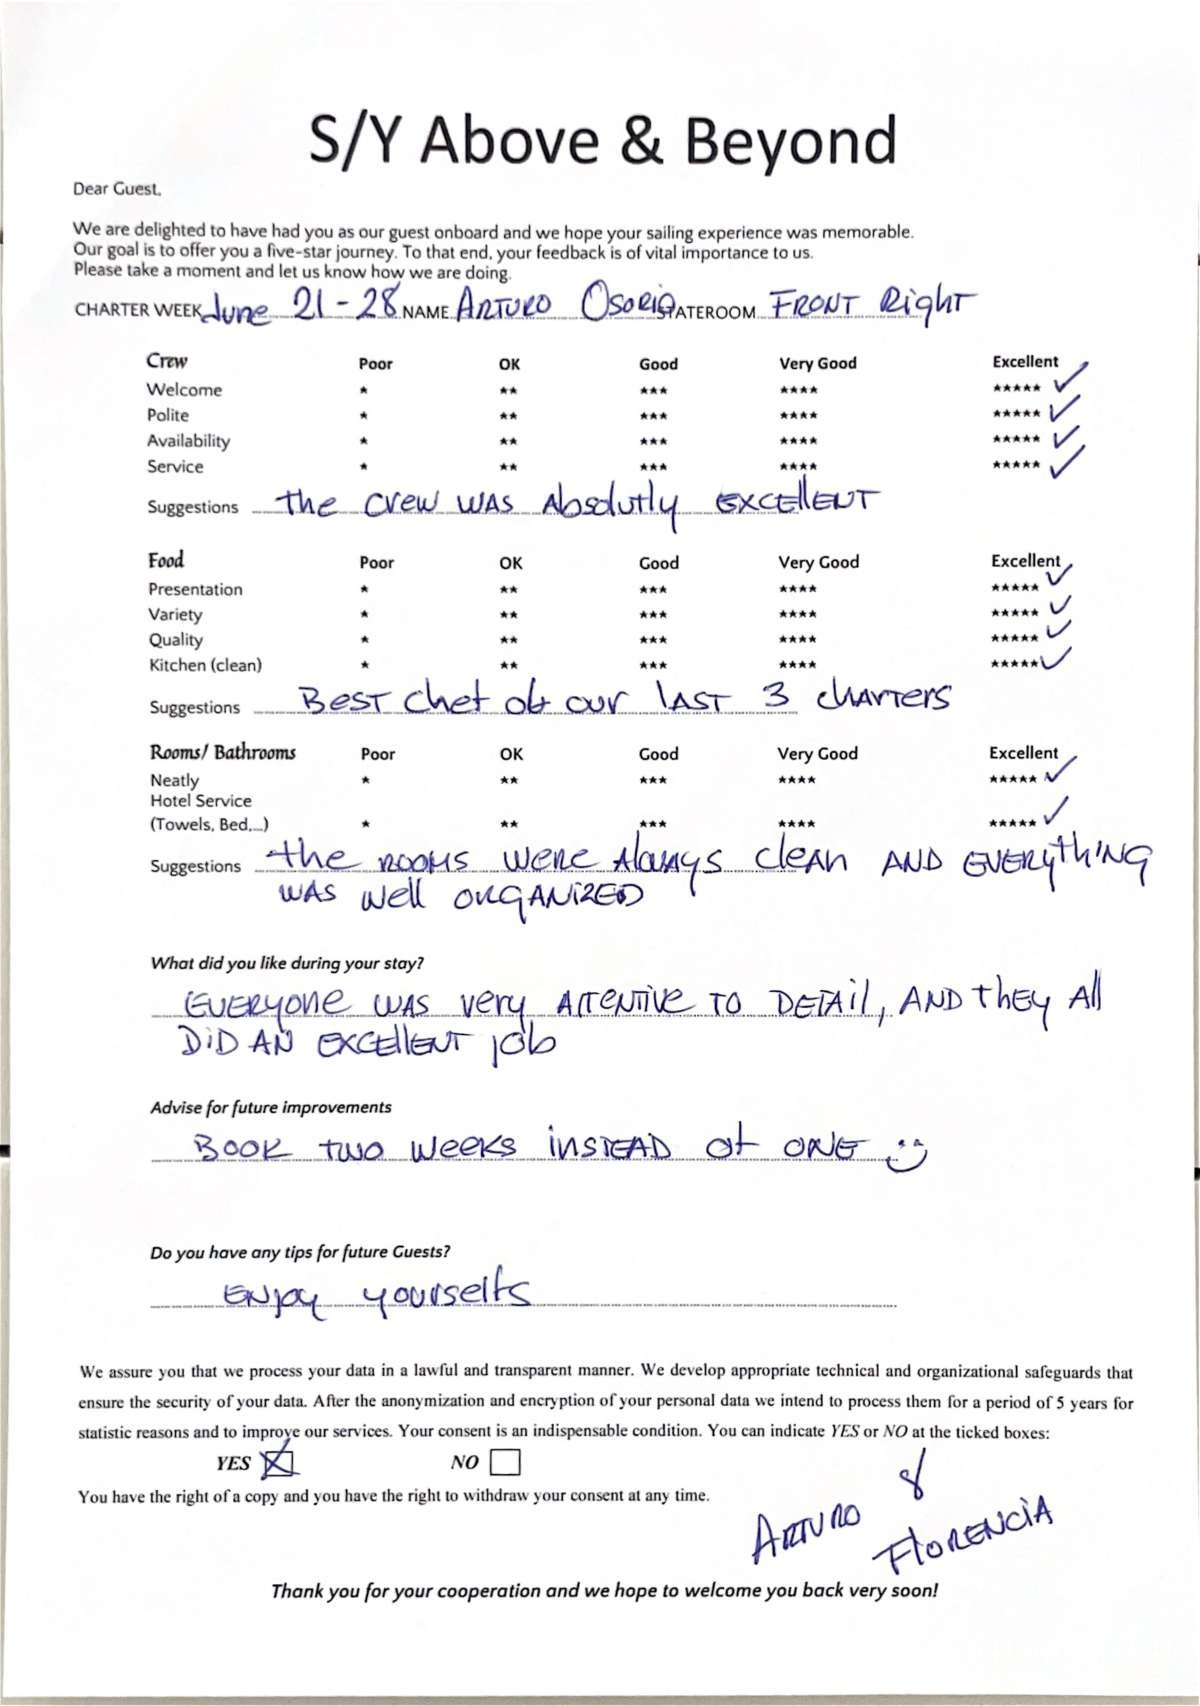 S/Y Above & Beyond
Dear Guest,
We are delighted to have had you as our guest onboard and we hope your sailing experience was memorable.
Our goal is to offer you a five-star journey. To that end, your feedback is of vital importance to us.
Please take a moment and let us know how we are doing.
CHARTER WEEK June 21-28 NAME ARTURO OSORIO STATEROOM FRONT Right
Crew Poor OK Good Very Good Excellent
Welcome * ** *** **** ***** ✓
Polite * ** *** **** ***** ✓
Availability * ** *** **** ***** ✓
Service * ** *** **** ***** ✓
Suggestions the crew was Absolutly EXCEllENT
Food Poor OK Good Very Good Excellent
Presentation * ** *** **** ***** ✓
Variety * ** *** **** ***** ✓
Quality * ** *** **** ***** ✓
Kitchen (clean) * ** *** **** ***** ✓
Suggestions BEST chef of our lAST 3 chARTERS
Rooms/ Bathrooms Poor OK Good Very Good Excellent
Neatly * ** *** **** ***** ✓
Hotel Service
(Towels, Bed,...) * ** *** **** ***** ✓
Suggestions the ROOMS WERE AlwAys cleAN AND EVERythiNG
WAS well ORGANiZED
What did you like during your stay?
EVERyONE WAS very ATTENTIVE TO DETAil, AND thEy All
DiD AN EXCEllENT job
Advise for future improvements
BOOK TWO WEEKS iNSTEAD of ONE :)
Do you have any tips for future Guests?
ENjoy yourselfs
We assure you that we process your data in a lawful and transparent manner. We develop appropriate technical and organizational safeguards that
ensure the security of your data. After the anonymization and encryption of your personal data we intend to process them for a period of 5 years for
statistic reasons and to improve our services. Your consent is an indispensable condition. You can indicate YES or NO at the ticked boxes:
YES ☒ NO ☐
You have the right of a copy and you have the right to withdraw your consent at any time.
ARTURO &
FlORENCiA
Thank you for your cooperation and we hope to welcome you back very soon!